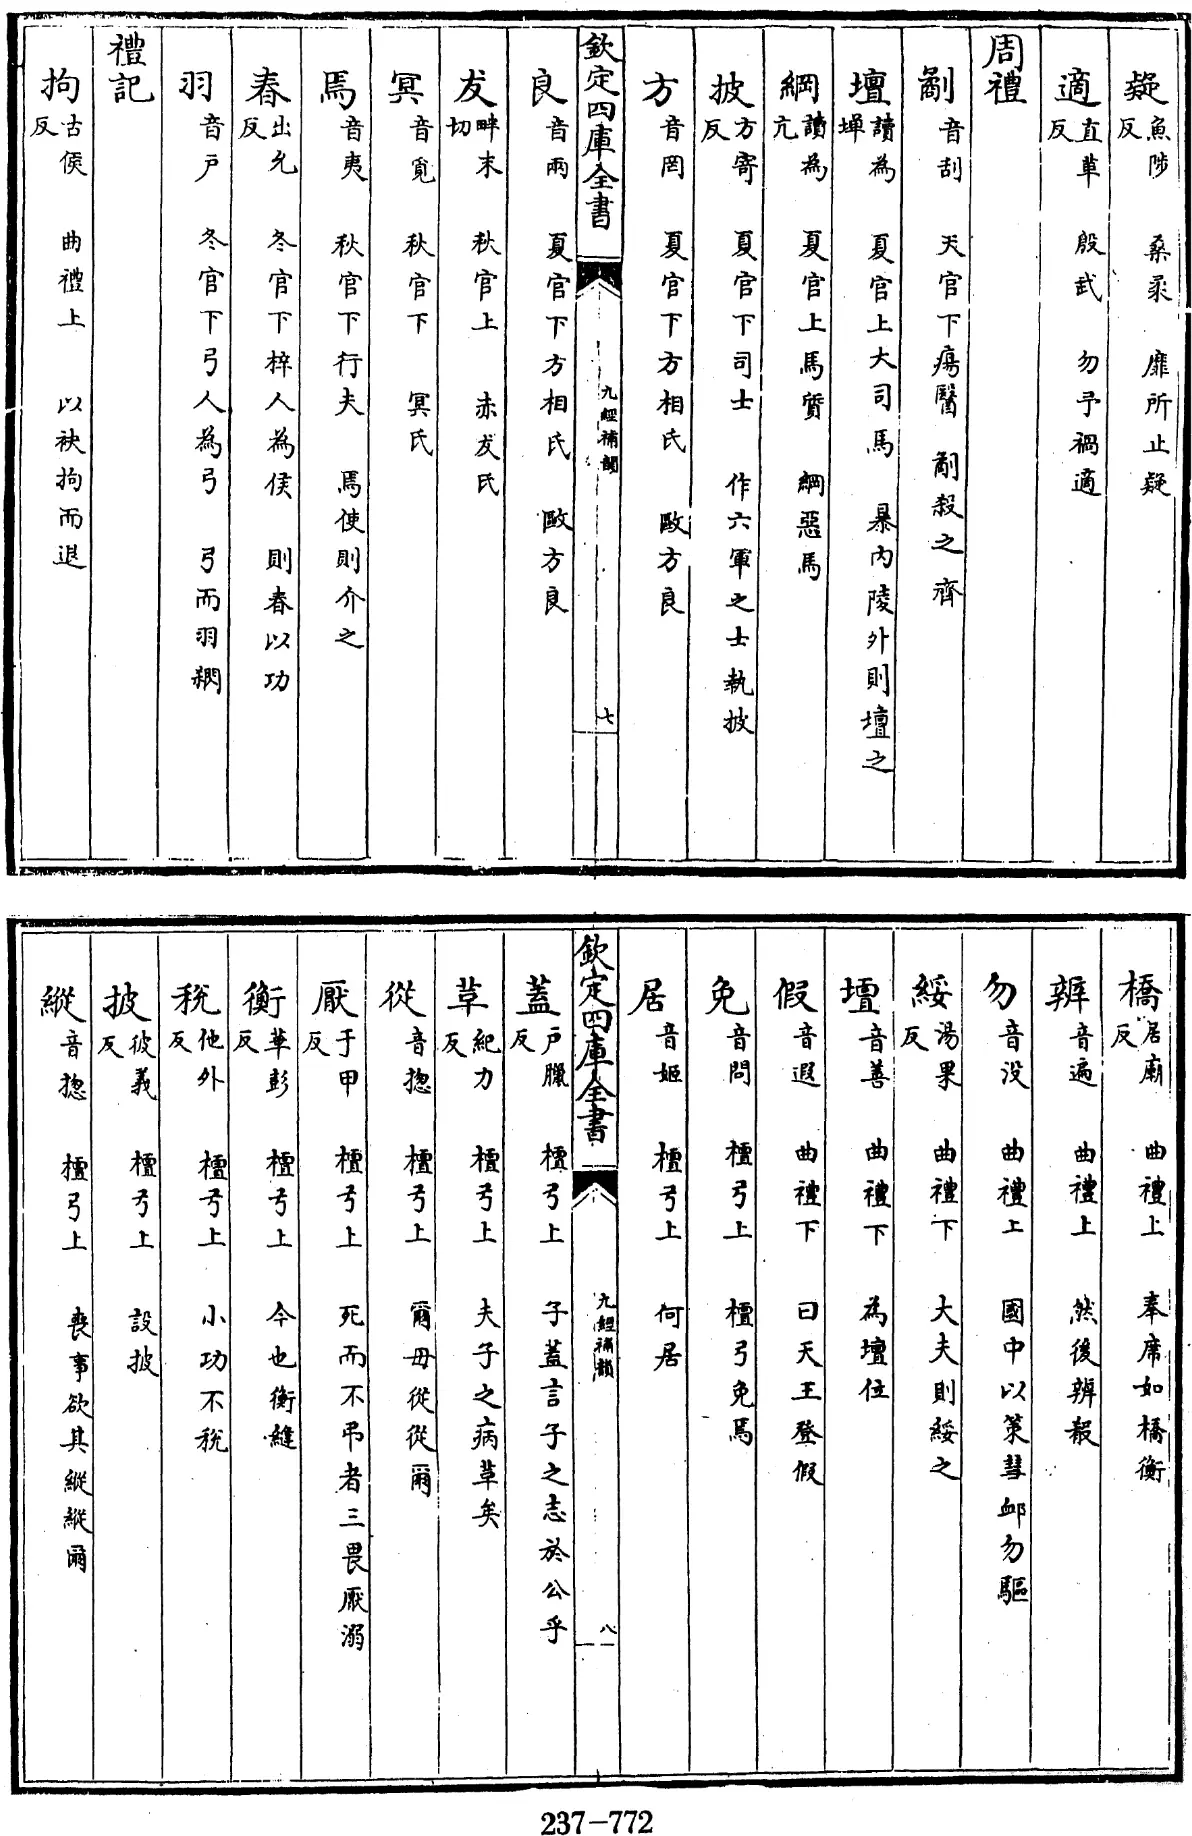 疑魚陟反 桑柔 靡所止疑
適直革反 殷武 勿予禍適
周禮
劀音刮 天官下瘍醫 劀殺之齊
壇讀為墠 夏官上大司馬 暴內陵外則壇之
綱讀為亢 夏官上馬質 綱惡馬
披方寄反 夏官下司士 作六軍之士執披
方音罔 夏官下方相氏 敺方良
欽定四庫全書
九經補韻
七
良音兩 夏官下方相氏 敺方良
犮畔末切 秋官上 赤犮氏
冥音覓 秋官下 冥氏
焉音夷 秋官下行夫 焉使則介之
春出允反 冬官下梓人為侯 則春以功
羽音戶 冬官下弓人為弓 弓而羽𥎊
禮記
拘古侯反 曲禮上 以袂拘而退
橋居廟反 曲禮上 奉席如橋衡
辨音遍 曲禮上 然後辨殽
勿音沒 曲禮上 國中以策彗卹勿驅
綏湯果反 曲禮下 大夫則綏之
壇音善 曲禮下 為壇位
假音遐 曲禮下 曰天王登假
免音問 檀弓上 檀弓免焉
居音姬 檀弓上 何居
欽定四庫全書
九經補韻
八
蓋戶臘反 檀弓上 子蓋言子之志於公乎
革紀力反 檀弓上 夫子之病革矣
從音揔 檀弓上 爾毋從從爾
厭于甲反 檀弓上 死而不弔者三畏厭溺
衡華彭反 檀弓上 今也衡縫
稅他外反 檀弓上 小功不稅
披彼義反 檀弓上 設披
縱音揔 檀弓上 喪事欲其縱縱爾
237-772